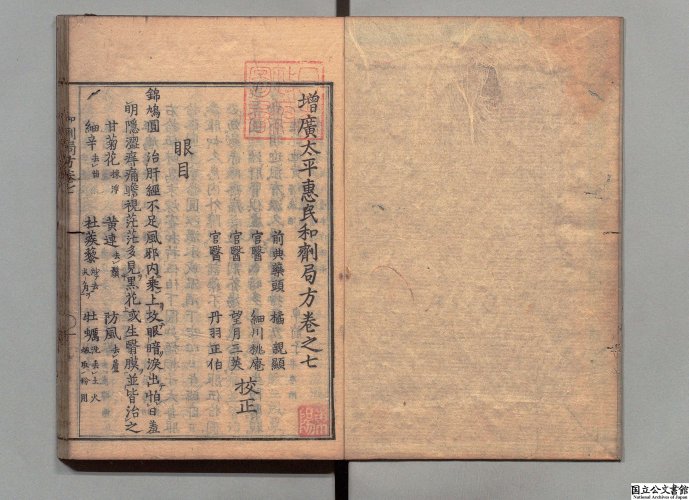 增廣太平惠民和劑局方卷之七
前典藥頭 橘 親顯
官醫 細川桃庵
官醫 望月三英
官醫 丹羽正伯
校正
眼目
錦鳩圓 治肝經不足風邪内乘上攻眼暗淚出怕日羞
明隱澀癢痛瞻視茫茫多見黑花或生翳膜並皆治之
甘菊花 黃連 防風去蘆
細辛去苗 杜蒺藜 牡蠣洗
和劑局方卷七
国立公文書館
National Archives of Japan